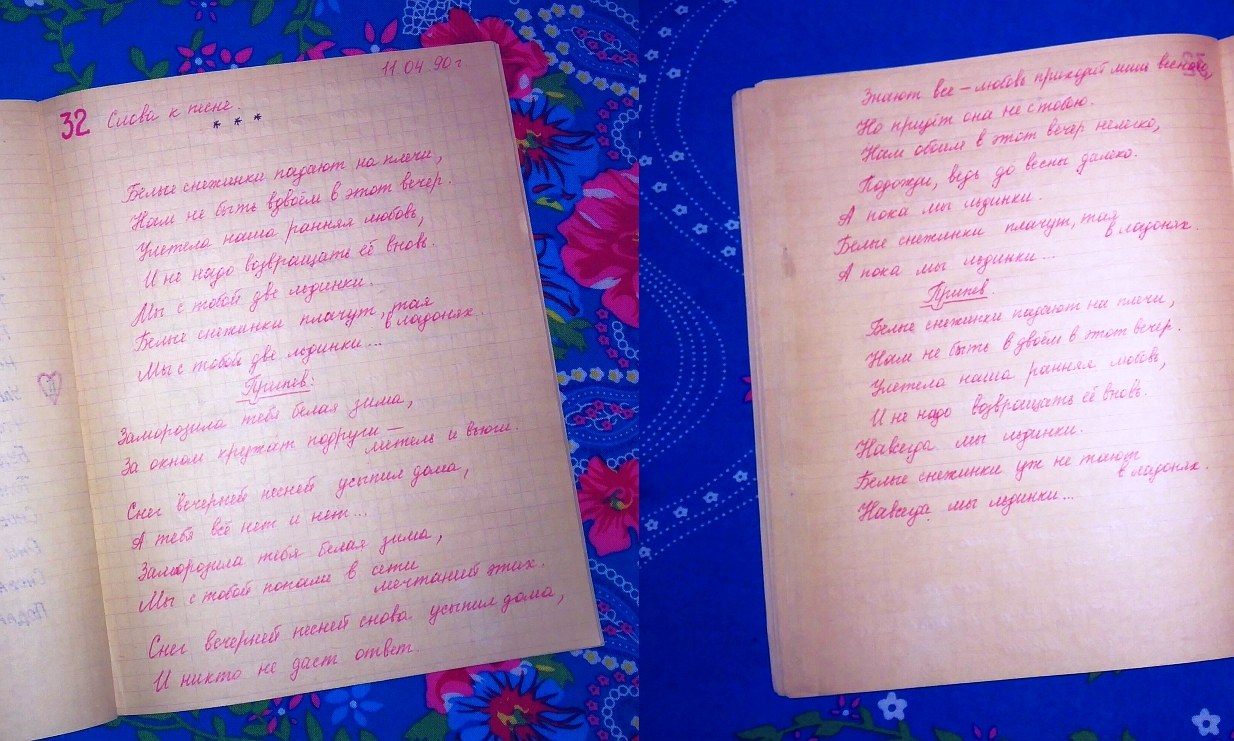 11.04.90 г.
32 Слова к песне.
* * *
Белые снежинки падают на плечи,
Нам не быть вдвоём в этот вечер.
Улетела наша ранняя любовь,
И не надо возвращать её вновь.
Мы с тобой две льдинки.
Белые снежинки плачут, тая
в ладонях.
Мы с тобой две льдинки...
Припев:
Заморозила тебя белая зима,
За окном кружат подруги —
метель и вьюги.
Снег вечерней песней усыпил дома,
А тебя всё нет и нет...
Заморозила тебя белая зима,
Мы с тобой попали в сети
мечтаний этих.
Снег вечерней песней снова усыпил дома,
И никто не даст ответ.
Знают все – любовь приходит лишь весною,
Но придёт она не с тобою.
Нам обоим в этот вечер нелегко,
Подожди, ведь до весны далеко.
А пока мы льдинки.
Белые снежинки плачут, тая
в ладонях.
А пока мы льдинки...
Припев.
Белые снежинки падают на плечи,
Нам не быть вдвоём в этот вечер.
Улетела наша ранняя любовь,
И не надо возвращать её вновь.
Навсегда мы льдинки.
Белые снежинки уж не тают
в ладонях.
Навсегда мы льдинки...